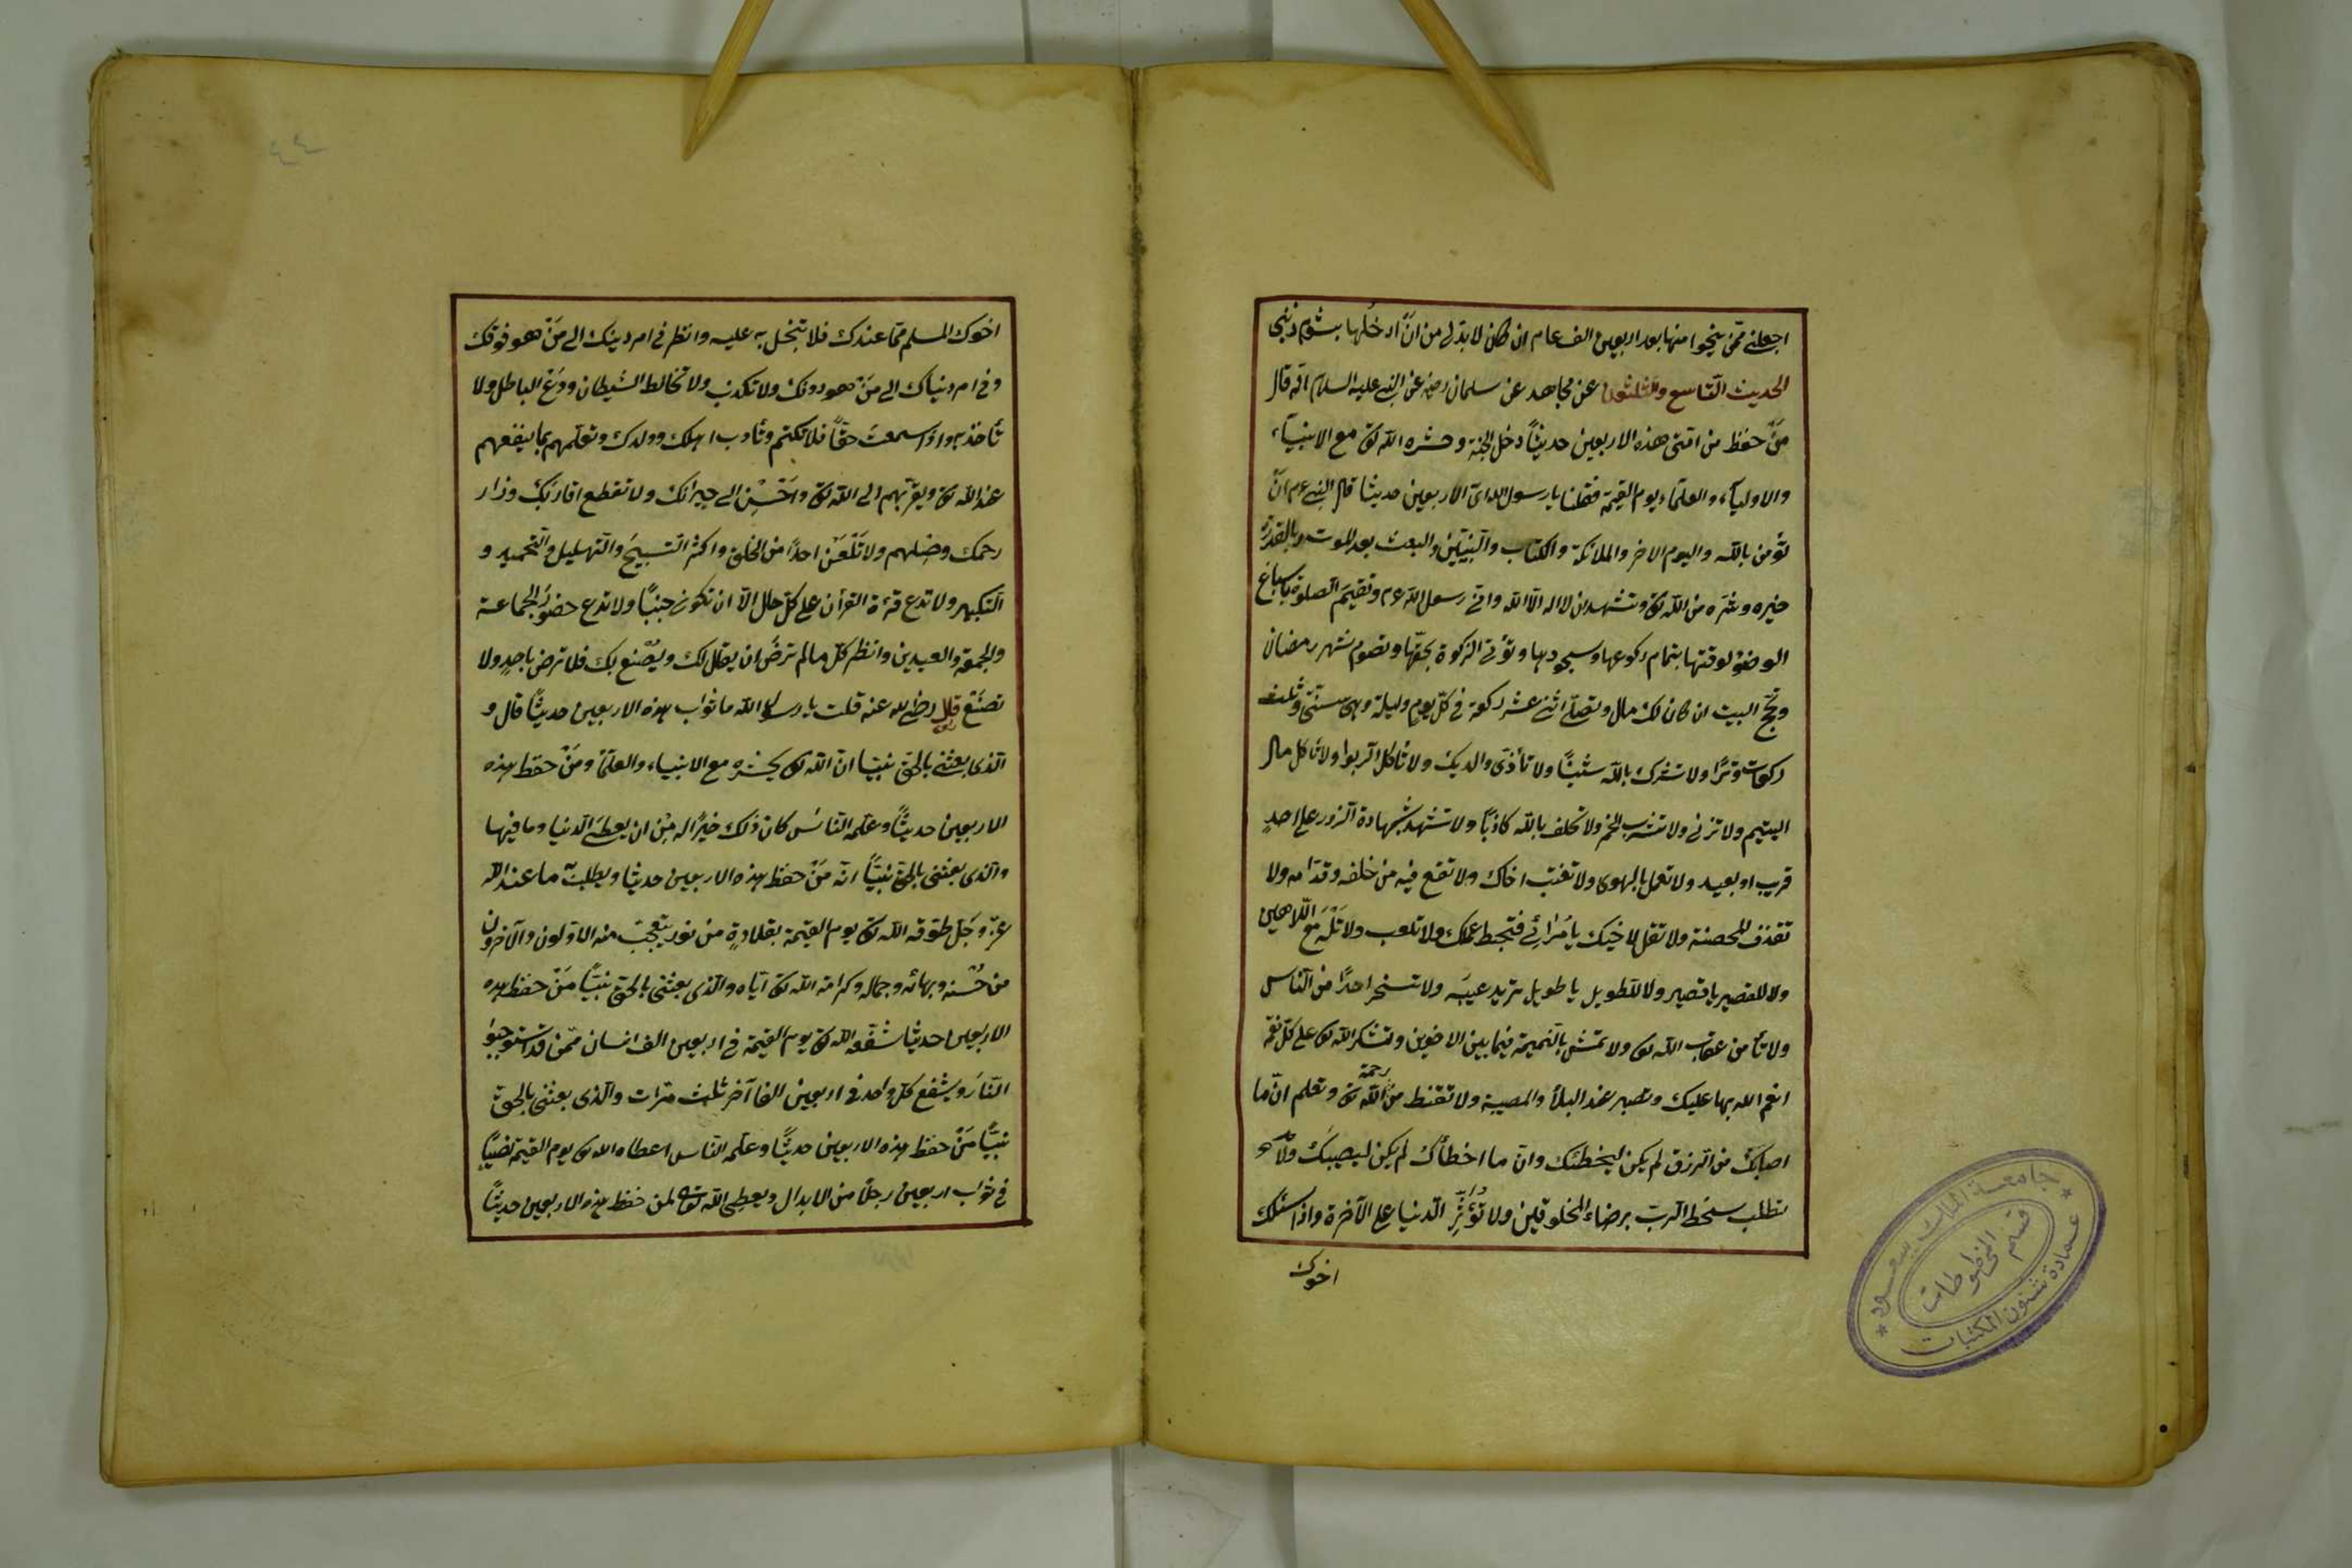 اجعلني ممّن ينجوا منها بعد اربعين الف عام ان كان لا بدّ لي من انّ ادخلها بشوم ذنبي
الحديث التّاسع والثلثون عن مجاهد عن سلمان رضه عن النبي عليه السلام انّه قال
منْ حفظ من امّتى هذه الاربعين حديثاً دخل الجنة وحشره الله تع مع الانبيآء
والاوليآء والعلمآء يوم القيمة فقلنا يا رسول الله اىّ الاربعين حديثا قال النبي ع م انْ
تؤمن بالله واليوم الاخر والملائكة والكتاب والنّبيّين والبعث بعد الموت وبالقدر
خيره وشرّه من الله تع وتشهد ان لا اله الّا الله وانّي رسول الله ع م وتقيم الصلوة باسباغ
الوضوء لوقتها بتمام ركوعها وسجودها وتؤتي الزكوة بحقّها وتصوم شهر رمضان
وتحجّ البيت ان كان لك مال وتصلّي اثني عشر ركعة في كلّ يوم وليلة وهى سنّتى وثلث
ركعات وترًا ولا تشرك بالله شيئًا ولا تأذى والديك ولا تأكل الربوا ولا تأكل مال
اليتيم ولا تزنى ولا تشرب الخمر ولا تحلف بالله كاذبًا ولا تشهد شهادة الزور على احدٍ
قريب او بعيد ولا تعمل بالهوى ولا تغتب اخاك ولا تقع فيه من خلفه وقدّامه ولا
تقذف المحصنة ولا تقل لاخيك يا مُرائي فتحبط عملك ولا تلعب ولا تَلْهَ مع اللّاهين
ولا للقصير يا قصير ولا للطويل يا طويل تريد عيبَه ولا تسخر احدًا من النّاس
ولا تأمن عقاب الله تع ولا تمش بالنّميمة فيما بين الاخوين وتشكر الله تع على كلّ نعمة
انعم الله بها عليك وتصبر عند البلاء والمصيبة ولا تقنط من رحمة الله تع وتعلم انّ ما
اصابك من الرزق لم يكن ليخطئك وانّ ما اخطأك لم يكن ليصيبك ولا
تطلب سخط الربّ برضاء المخلوقين ولا تُؤثِرِ الدّنيا على الآخرة واذا سئلك
اخوك
٤٤
اخوك المسلم ممّا عندك فلا تبخل به عليه وانظر فى امر دينك الى منْ هو فوقك
وفى امر دنياك الى منْ هو دونك ولا تكذب ولا تخالط الشيطان ودع الباطل ولا
تأخذ به واذا سمعتَ حقّاً فلا تكتم وتأدب اهلك وولدك وتعلّمهم بما ينفعهم
عند الله تع ويقرّبهم الى الله تع واَحْسِن الى جيرانك ولا تقطع اقاربك وذا
رحمك وصِلهم ولا تَلْعَنْ احدًا من الخلق واكثر التسبيحَ والتهليل والتحميد و
التكبير ولا تدع قرءة القرأن على كلّ حال الّا ان تكون جنبًا ولا تدع حضورَ الجماعة
والجمعة والعيدين وانظر كلّ ما لم ترضَ ان يقال لك ويُصْنع بك فلا ترض باحدٍ ولا
تصنَعْ قال رضى الله عنه قلت يا رسول الله ما ثواب هذه الاربعين حديثًا قال و
الّذى بعثنى بالحقّ نبيّا انّ الله تع يحشره مع الانبياء والعلمآء ومنْ حفظ هذه
الاربعين حديثًا وعلّمه النّاسَ كان ذلك خيرًا له مِن ان يعطى الدّنيا وما فيها
والّذى بعثنى بالحقّ نبيًّا انّه مَنْ حفظ هذه الاربعين حديثا ويطلب ما عند الله
عزّ وجَلّ طوّقه الله تع يوم القيمة بقلادةٍ من نور يتعجب منه الاوّلون والآخرون
من حُسْنه وبهائه وجماله وكرامة الله تع ايّاه والّذى بعثنى بالحقّ نبيًّا مَنْ حفظ هذه
الاربعين حديثا شفّعه الله تع يوم القيمة فى اربعين الف انسان ممّن قد استوجبوا
النّارَ ويشفع كلّ واحد فى اربعين الفا آخر ثلث مرّات والّذى بعثنى بالحقّ
نبيًّا مَنْ حفظ هذه الاربعين حديثًا وعلّمه النّاس اعطاه الله تع يوم القيمة نصيبًا
فى ثواب اربعين رجلًا من الابدال ويعطى الله تع لمن حفظ هذه الاربعين حديثًا
جامعة الملك سعود
قسم المخطوطات
عمادة شئون المكتبات